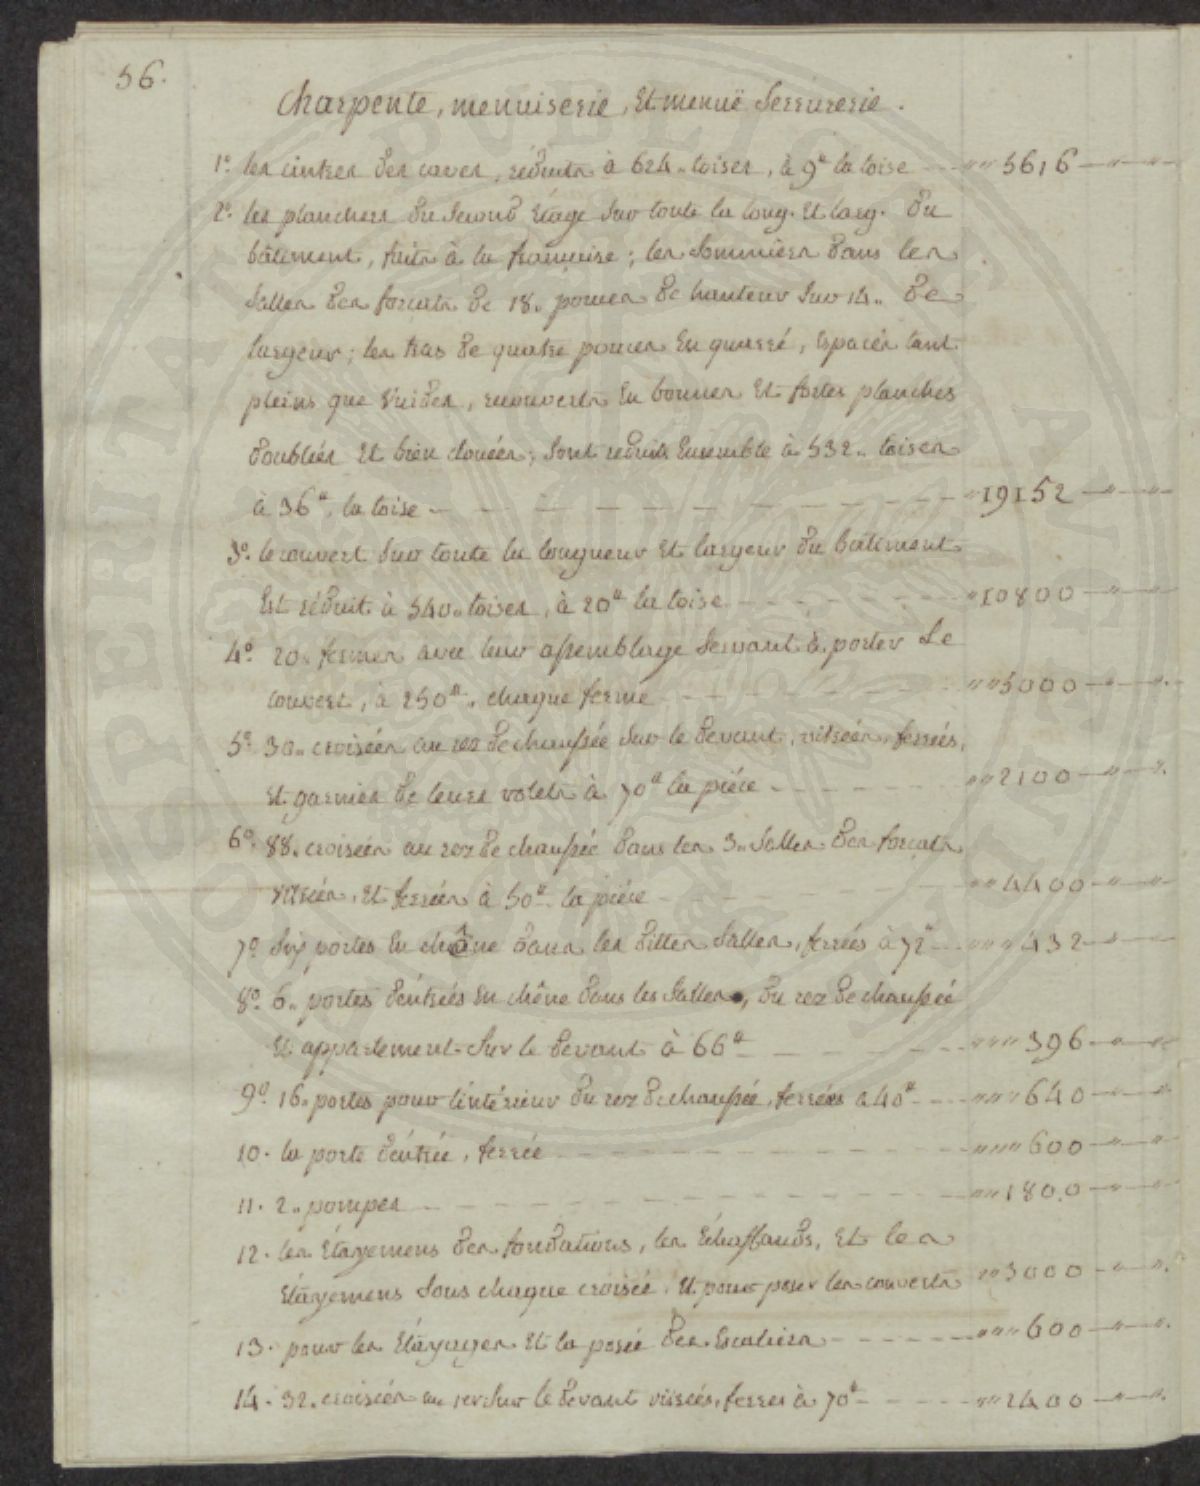 56.
Charpente, menuiserie, Et menuë Serrurerie.
1.° les cintres des caves, réduits à 624.. toises, à 9# la toise — """ 5616 — " — "
2.° les planchers du Second Etage Sur toute la long. Et larg. du
bâtiment, faits à la françoise; les Sommiers dans les
Salles des forçats de 18. pouces de hauteur Sur 14.. de
largeur; les tras de quatre pouces En quarré, Espacés tant
pleins que Vuides, recouverts En bonnes Et fortes planches
doublées Et bien clouées; Sont réduits Ensemble à 532.. toises
à 36#. la toise — "19152 — " — "
3.° le couvert Sur toute la longueur Et largeur du bâtiment
Est réduit à 540.. toises, à 20# la toise — "10800 — " — "
4.° 20. fermes avec leur assemblage Servant à porter Le
couvert, à 250#. chaque ferme — ""5000 — " — ".
5.° 30.. croisées au rez de chaussée Sur le devant, vitrées, ferrées,
Et garnies de leurs volets à 70# la piéce — ""2100 — " — ".
6.° 88. croisées au rez de chaussée dans les 3.. Salles des forçats
vitrées, Et ferrées à 50# la piéce — ""4400 — " — "
7.° Six portes En chêne dans les dittes Salles, ferrées à 72# — """432 — " — "
8.° 6.. portes d'éntrées En chêne dans les Salles, du rez de chaussée
Et appartement Sur le devant à 66# — """396 — " — "
9.° 16. portes pour l'intérieur du rez de chaussée, ferrées à 40# — """640 — " — "
10. la porte d'éntrée, ferrée — """600 — " — "
11. 2.. pompes — ""1800 — " — "
12. les Etayemens des fondations, les Echaffauds, Et les
Etayemens Sous chaque croisée, Et pour poser les couverts — ""3000 — " — ".
13. pour les Etayages Et la posée des Escaliers — """600 — " — ".
14. 32. croisées au Sur le devant vitrées, ferrées à 70# — ""2400 — " — ".